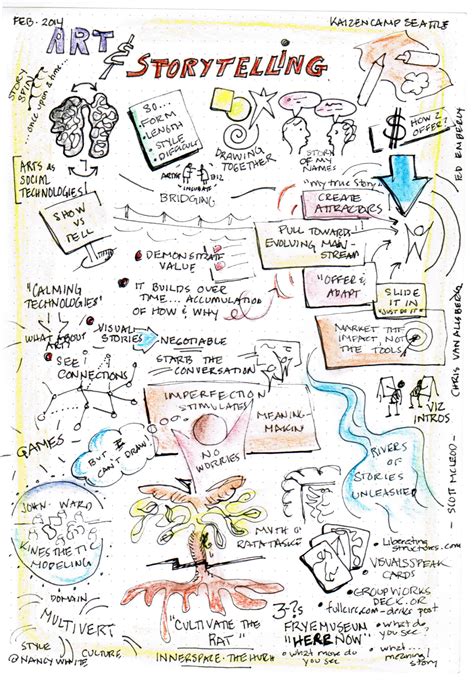 FEB. 2014
KAIZENCAMP SEATTLE
ART &
STORYTELLING
STORY
SPINE
... once upon a time...
SO...
FORM
LENGTH
STYLE
DIFFICULT
DRAWING
TOGETHER
STORY
OF MY
NAMES
$
HOW 2
OFFER?
ED EMBERLY
ARTS AS
SOCIAL
TECHNOLOGIES
ARTIST
BIZ
BRIDGING
"my true story"
CREATE
ATTRACTORS
SHOW
VS
TELL
PULL TOWARDS
EVOLVING MAIN-
STREAM
• DEMONSTRATE
VALUE
"OFFER &
ADAPT
SLIDE
IT IN
"JUST DO IT"
"CALMING
TECHNOLOGIES"
IT BUILDS OVER
TIME... ACCUMULATION
OF HOW & WHY
CHRIS VAN ALLSBERG
WHAT ABOUT
ART?
VISUAL
STORIES
NEGOTIABLE
STARTS THE
CONVERSATION
MARKET THE
IMPACT, NOT
THE TOOLS
SEE!
CONNECTIONS
IMPERFECTION
STIMULATES
MEANING-
MAKING
VIZ
INTROS
GAMES
BUT I
CAN'T DRAW!
NO
WORRIES
RIVERS
OF
STORIES
UNLEASHED
— SCOTT MCLEOD —
JOHN WARD
KINESTHETIC
MODELING
MYTH OF
• Liberating
Structures.com
• VISUALSPEAK
CARDS
DOMAIN
MULTIVERT
STYLE
CULTURE
@NANCYWHITE
"CULTIVATE THE
RAT"
INNERSPACE • THE HUB
3-?s
FRYE MUSEUM
"HERE NOW"
• GROUPWORKS
DECK.OR
• what do
you see?
• what more do
you see?
• what...
meaning?
story